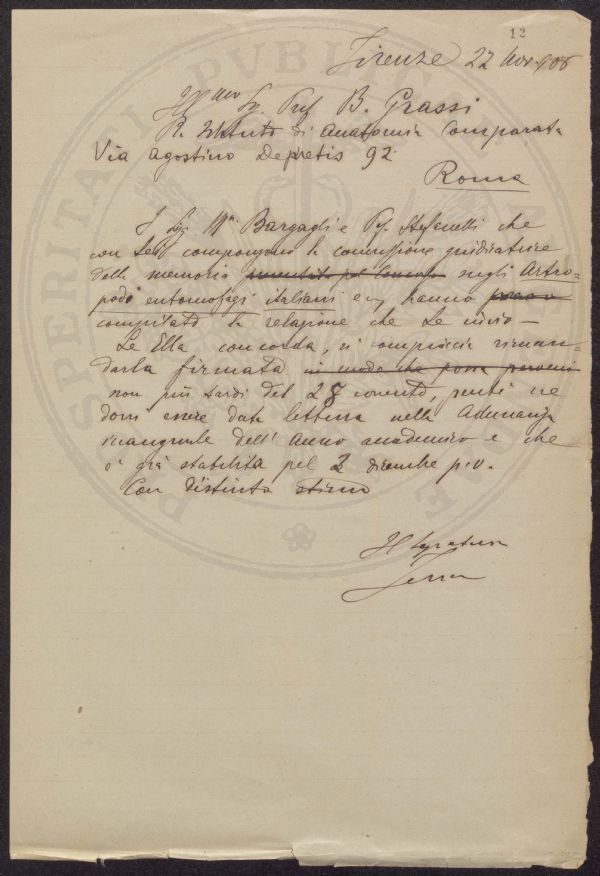 12
Firenze 22 Nov. 906
Ill.mo Sig. Prof. B. Grassi
R. Istituto di Anatomia Comparata
Via Agostino Depretis 92
Roma
I Sig. M. Bargagli e Pr. Stefanelli che
con Lei compongono la commissione giudicatrice
della memoria presentata pel Concorso sugli Artro=
podi entomofagi italiani hanno
compilato la relazione che Le invio —
Se Ella concorda, si compiaccia riman=
darla firmata in modo che possa pervenir
non più tardi del 28 corrente, perché ne
dovrà essere data lettura nella Adunanza
inaugurale dell' Anno accademico e che
è già stabilita pel 2 dicembre p.v.
Con distinta stima
Il Segretario
PROSPERITATI PVBLICAE